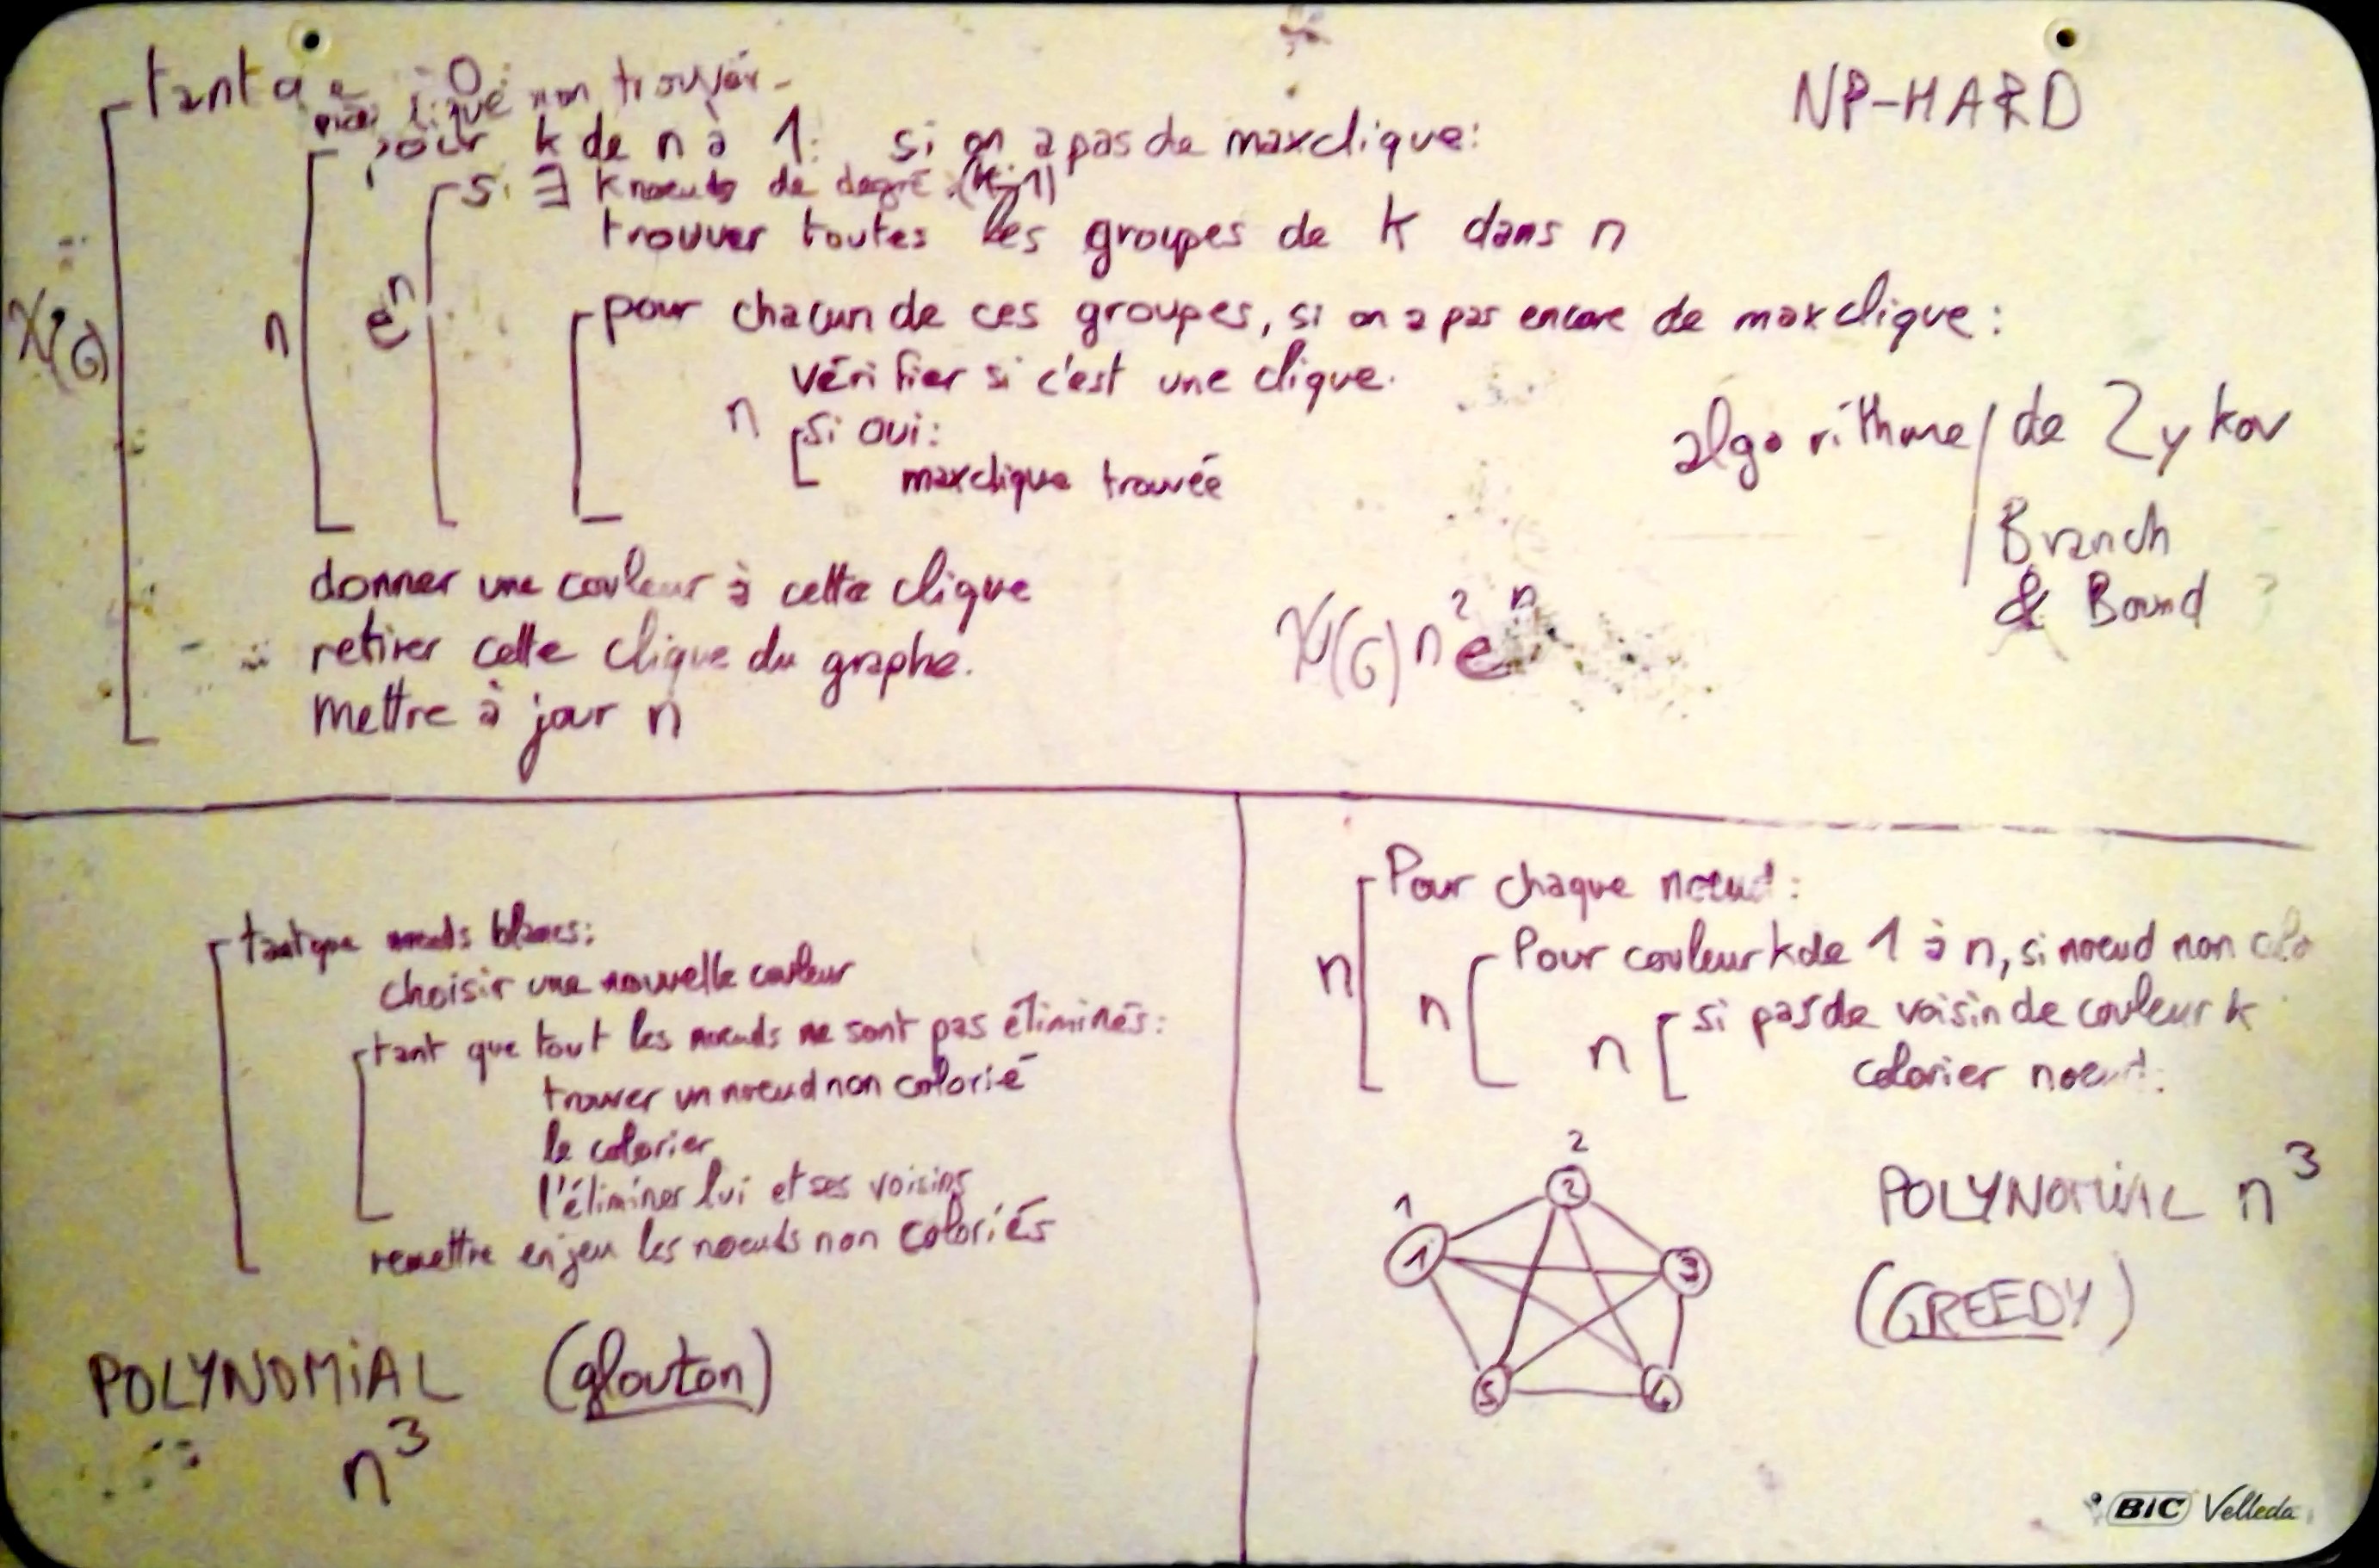 tant
non trouvée
pour k de n à 1: si on a pas de maxclique:
si ∃ k noeuds de degré (k-1)
trouver toutes les groupes de k dans n
pour chacun de ces groupes, si on a pas encore de maxclique:
vérifier si c'est une clique.
si oui:
maxclique trouvée
donner une couleur à cette clique
retirer cette clique du graphe.
mettre à jour n
χ(G)
n
e^n
n
NP-HARD
algorithme / de Zykov
Branch
& Bound ?
χ(G) n² e^n
tantque noeuds blancs:
choisir une nouvelle couleur
tant que tout les noeuds ne sont pas éliminés:
trouver un noeud non colorié
le colorier
l'éliminer lui et ses voisins
remettre en jeu les noeuds non coloriés
POLYNOMIAL (glouton)
n³
Pour chaque noeud:
Pour couleur k de 1 à n, si noeud non colo
si pas de voisin de couleur k
colorier noeud.
n
n
n
2
1
2
1
3
5
4
POLYNOMIAL n³
(GREEDY)
BIC Velleda